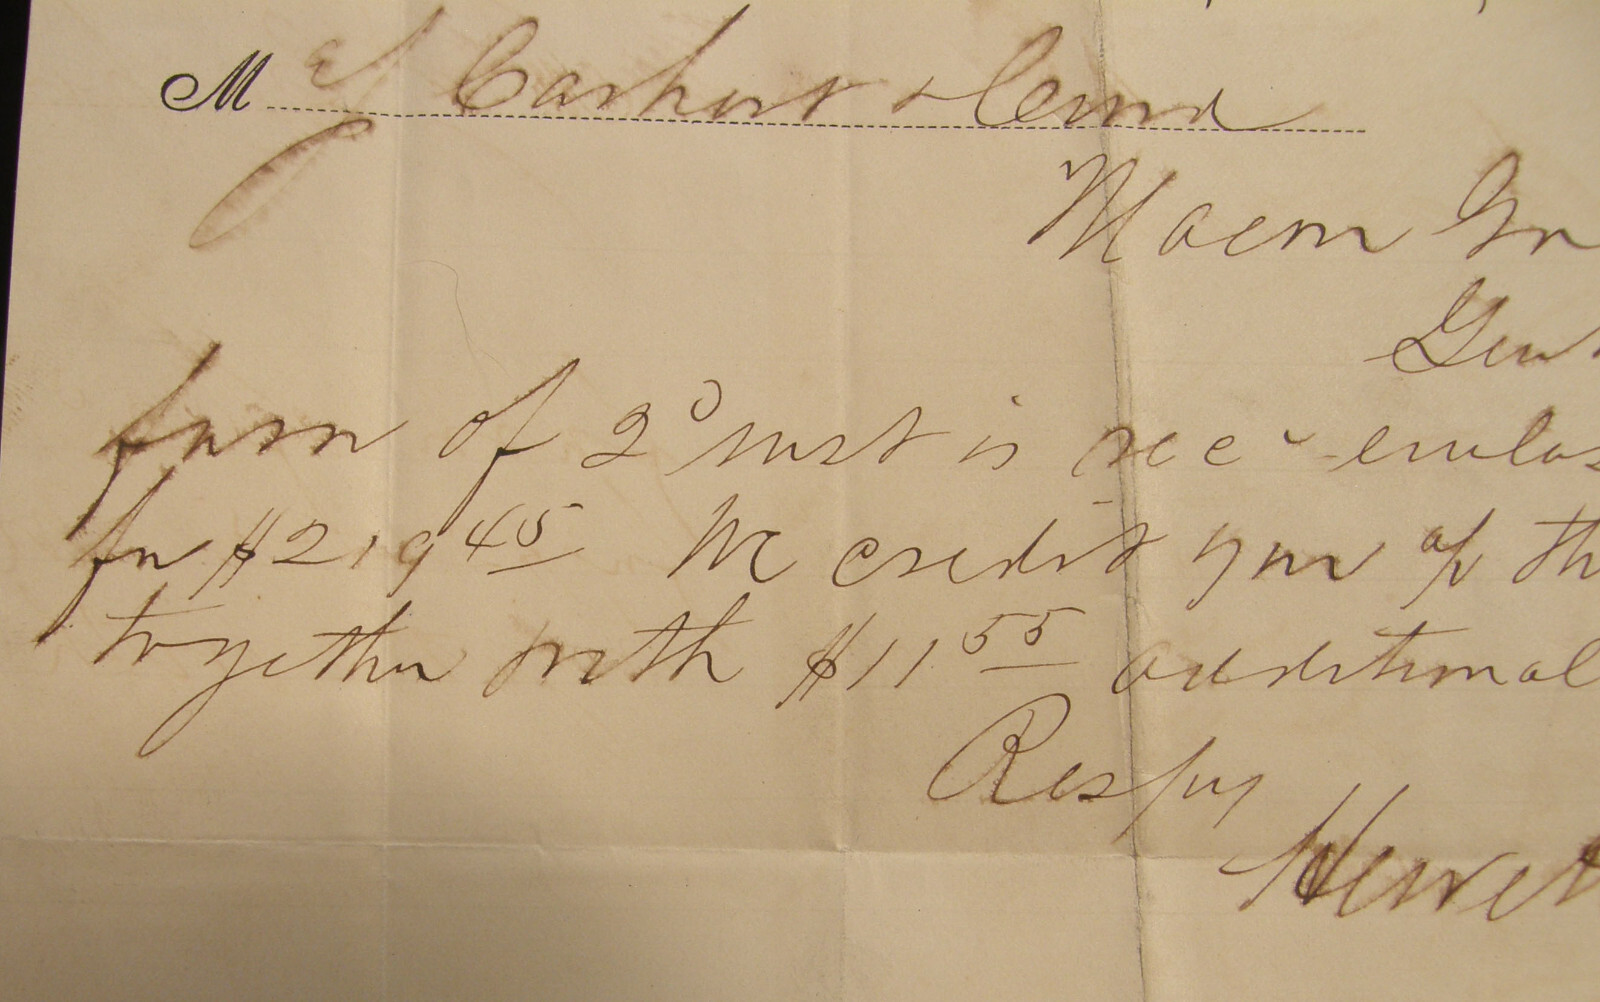 Mess Carhart & Curd
Macon Ga
Gent
favor of 2d inst is recd enclos
for $219 45 We credit your a/c th
together with $11 55 additional
Respy
Hewet